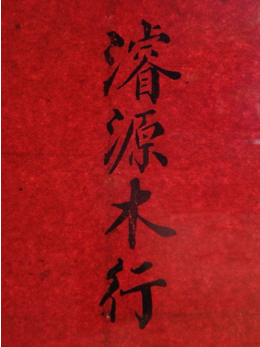 濬源木行